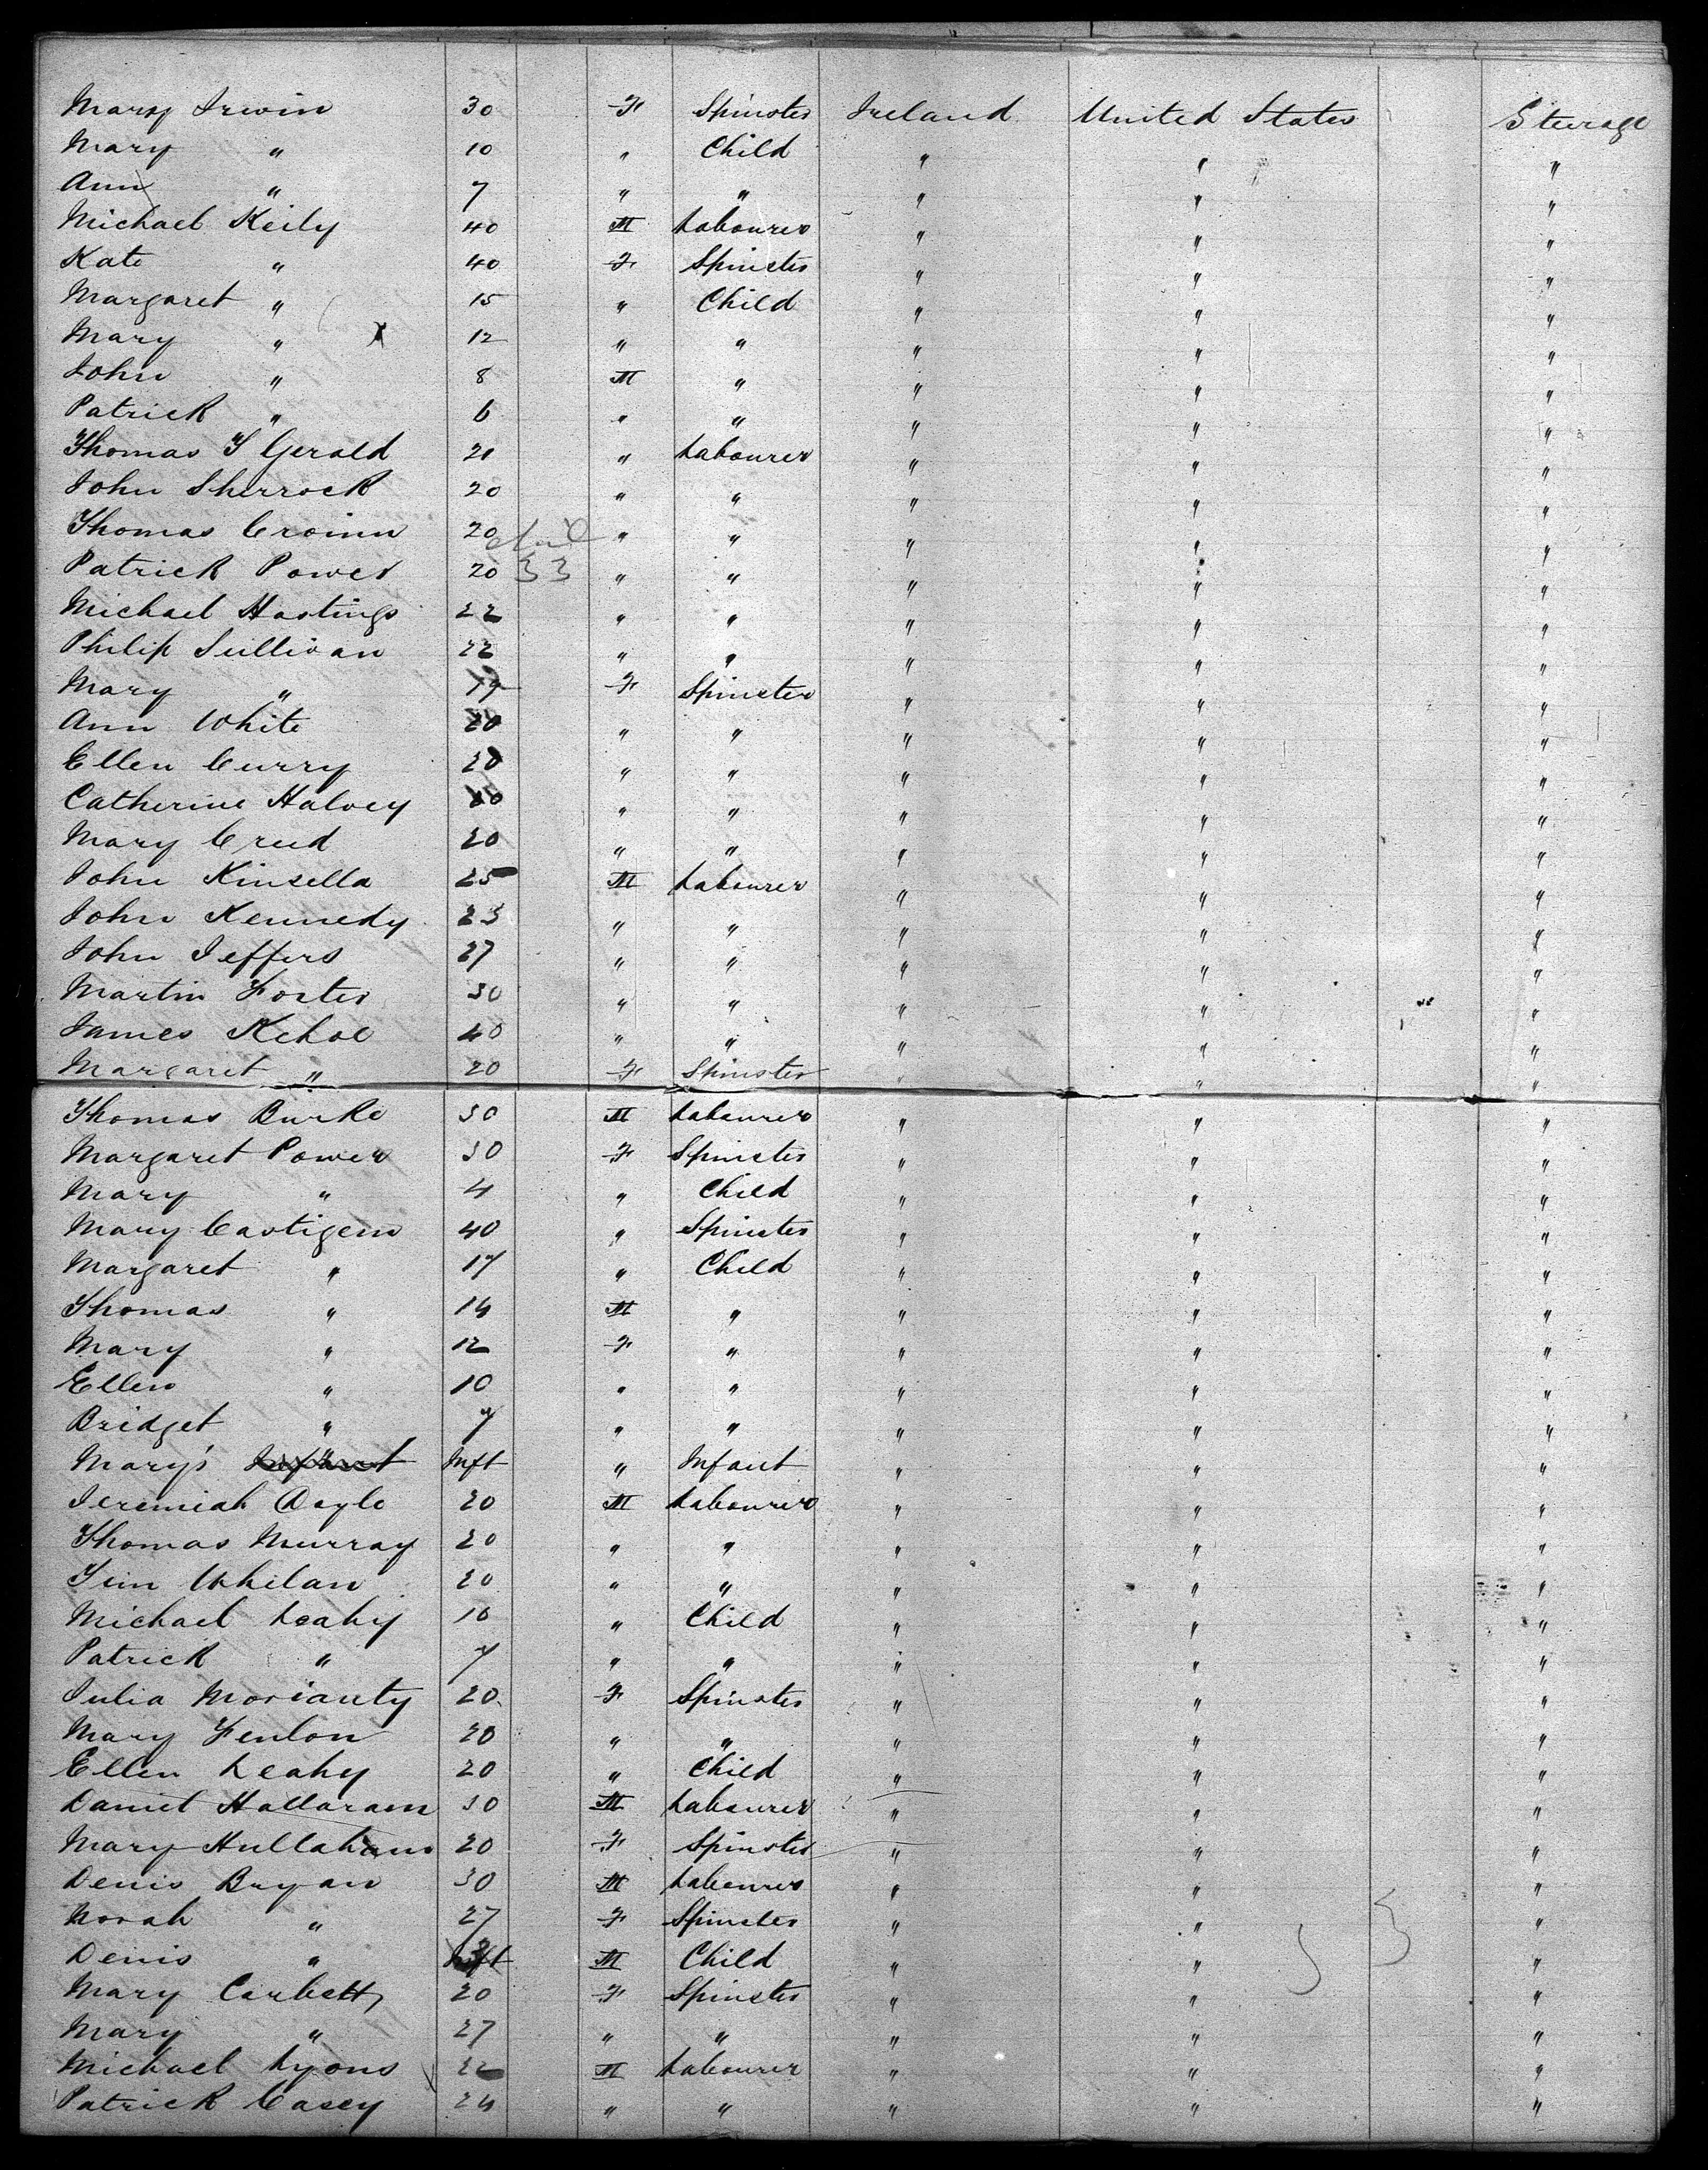 Mary Irwin 30 F Spinster Ireland United States Steerage
Mary " 10 " Child " " "
Ann " 7 " " " " "
Michael Keily 40 M Labourer " " "
Kate " 40 F Spinster " " "
Margaret " 15 " Child " " "
Mary " 12 " " " " "
John " 8 M " " " "
Patrick " 6 " " " " "
Thomas F Gerald 21 " Labourer " " "
John Sherrock 20 " " " " "
Thomas Croinn 20 " " " " "
Patrick Power 20 33 " " " " "
Michael Hastings 22 " " " " "
Philip Sullivan 22 " " " " "
Mary " 19 F Spinster " " "
Ann White 20 " " " " "
Ellen Curry 20 " " " " "
Catherine Halvey 20 " " " " "
Mary Creed 20 " " " " "
John Kinsella 25 M Labourer " " "
John Kennedy 23 " " " " "
John Jeffers 27 " " " " "
Martin Foster 30 " " " " "
James Kehoe 40 " " " " "
Margaret " 20 F Spinster " " "
Thomas Burke 30 M Labourer " " "
Margaret Power 30 F Spinster " " "
Mary " 4 " Child " " "
Mary Castigem 40 " Spinster " " "
Margaret " 17 " Child " " "
Thomas " 14 M " " " "
Mary " 12 F " " " "
Ellen " 10 " " " " "
Bridget " 7 " " " " "
Mary's Infant " Inft " Infant " " "
Jeremiah Doyle 20 M Labourer " " "
Thomas Murray 20 " " " " "
Tim Whelan 20 " " " " "
Michael Leahy 10 " Child " " "
Patrick " 7 " " " " "
Julia Moriarity 20 F Spinster " " "
Mary Fenlon 20 " " " " "
Ellen Leahy 20 " Child " " "
Daniel Hallaram 30 M Labourer " " "
Mary Hullaham 20 F Spinster " " "
Denis Bryan 30 M Labourer " " "
Norah " 27 F Spinster " " "
Denis " 3 M Child " " "
Mary Corbett 20 F Spinster " " "
Mary " 27 " " " " "
Michael Lyons 22 M Labourer " " "
Patrick Casey 24 " " " " "